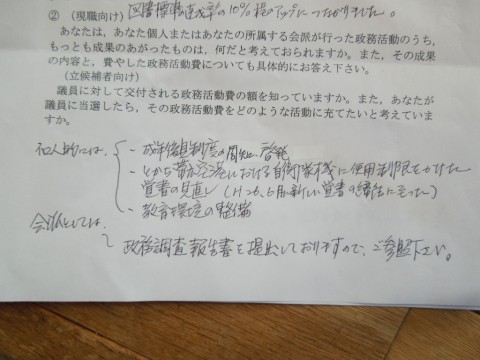 図書標準達成率の10%程のアップにつながりました。
② (現職向け)
あなたは，あなた個人またはあなたの所属する会派が行った政務活動のうち，
もっとも成果のあがったものは，何だと考えておられますか。また，その成果
の内容と，費やした政務活動費についても具体的にお答え下さい。
(立候補者向け)
議員に対して交付される政務活動費の額を知っていますか。また，あなたが
議員に当選したら，その政務活動費をどのような活動に充てたいと考えていま
すか。
個人的には、
- 成年後見制度の周知、啓発
- とかち帯広空港における自衛隊機に使用制限をかけた
覚書の見直し
- 教育環境の整備
会派としては、
政務調査報告書を提出しておりますので、ご参照下さい。